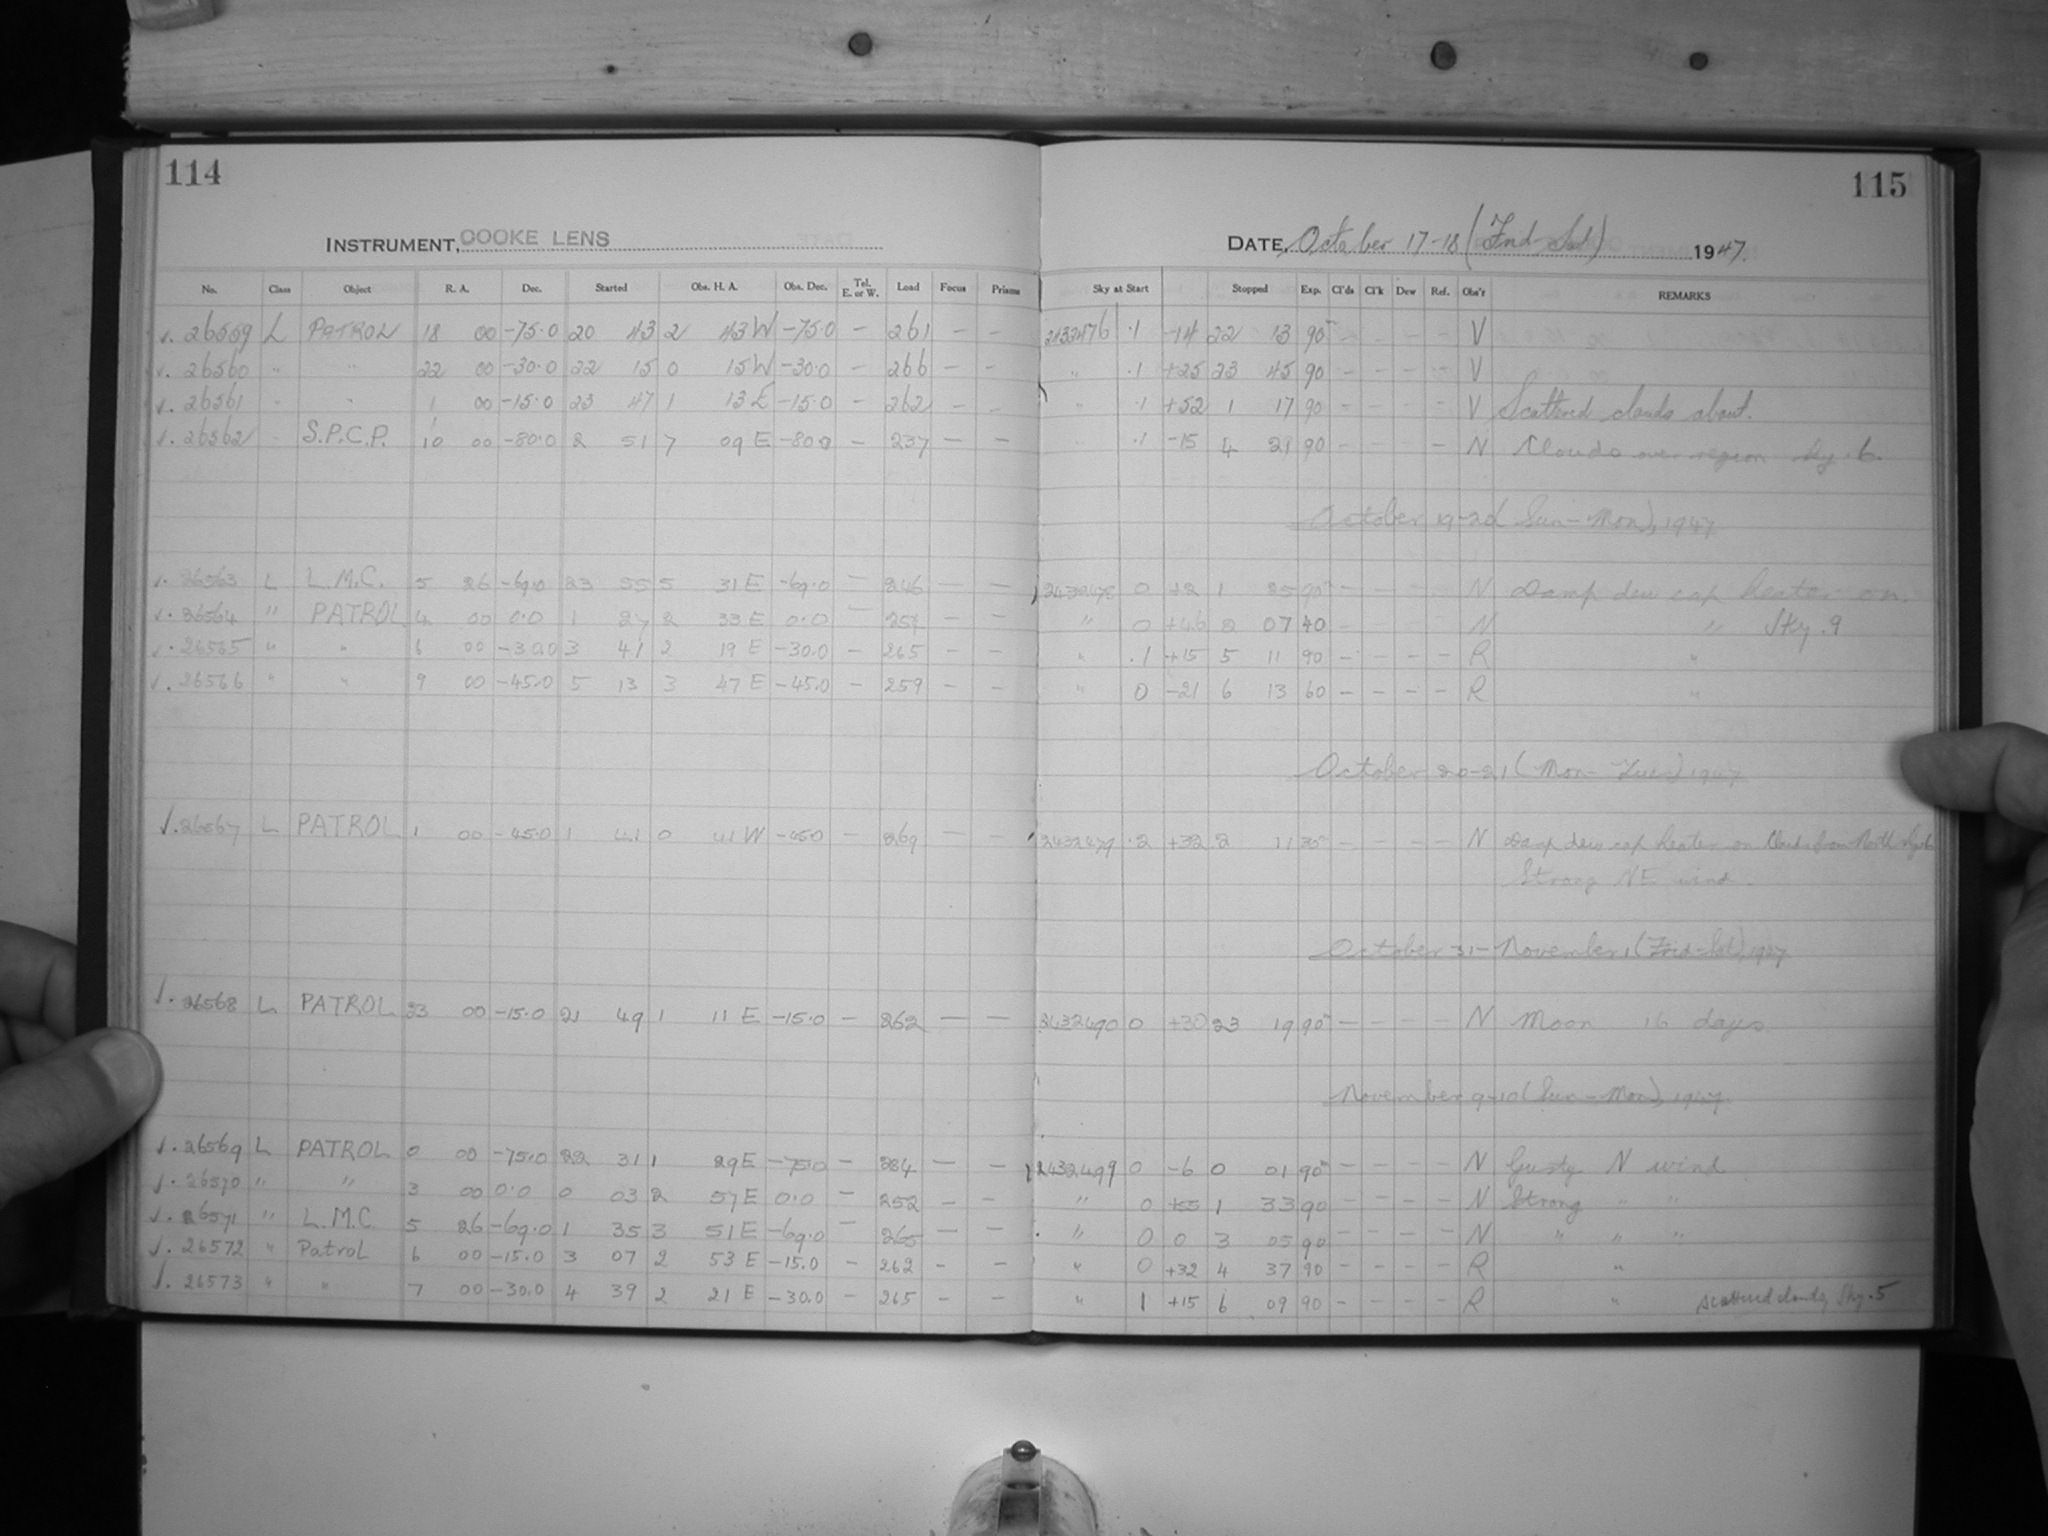 114
115
INSTRUMENT, COOKE LENS
DATE, October 17-18 (Frid-Sat) 1947.
No. Class Object R. A. Dec. Started Obs. H. A. Obs. Dec. Tel. E. or W. Load Focus Prisms Sky at Start Stopped Exp. Cl'ds Cl'k Dew Ref. Obs'r REMARKS
v. 26559 L PATROL 18 00 -75.0 20 43 2 43 W -75.0 - 261 - - 2432476 .1 -14 22 13 90 - - - - V
v. 26560 " " 22 00 -30.0 22 15 0 15 W -30.0 - 266 - - " .1 +25 23 45 90 - - - - V
v. 26561 " " 1 00 -15.0 23 47 1 13 E -15.0 - 262 - - " .1 +52 1 17 90 - - - - V Scattered clouds about.
v. 26562 S.P.C.P. 10 00 -80.0 2 51 7 09 E -80.0 - 237 - - .1 -15 4 21 90 - - - - N Clouds over region sky .6.
October 19-20 (Sun-Mon), 1947
v. 26563 L L.M.C. 5 26 -69.0 23 55 5 31 E -69.0 - 246 - - 2432478 0 +2 1 25 90 - - - - N Damp dew cap heater on.
v. 26564 " PATROL 4 00 0.0 1 27 2 33 E 0.0 - 257 - - " 0 +46 2 07 40 - - - - N " Sky .9
v. 26565 " " 6 00 -30.0 3 41 2 19 E -30.0 - 265 - - " .1 +15 5 11 90 - - - - R "
v. 26566 " " 9 00 -45.0 5 13 3 47 E -45.0 - 259 - - " 0 -21 6 13 60 - - - - R "
October 20-21 (Mon-Tues) 1947
v. 26567 L PATROL 1 00 -45.0 1 41 0 41 W -45.0 - 269 - - 2432479 .2 +32 2 11 30 - - - - N Damp dew cap heater on Clouds from North
Strong NE wind.
October 31-November 1 (Frid-Sat), 1947
v. 26568 L PATROL 23 00 -15.0 21 49 1 11 E -15.0 - 262 - - 2432490 0 +30 23 19 90 - - - - N Moon 16 days
November 9-10 (Sun-Mon), 1947.
v. 26569 L PATROL 0 00 -75.0 22 31 1 29 E -75.0 - 284 - - 2432499 0 -6 0 01 90 - - - - N Gusty N wind
v. 26570 " " 3 00 0.0 0 03 2 57 E 0.0 - 252 - - " 0 +55 1 33 90 - - - - N Strong " "
v. 26571 " L.M.C. 5 26 -69.0 1 35 3 51 E -69.0 - 265 - - " 0 0 3 05 90 - - - - N " " "
v. 26572 " Patrol 6 00 -15.0 3 07 2 53 E -15.0 - 262 - - " 0 +32 4 37 90 - - - - R "
v. 26573 " " 7 00 -30.0 4 39 2 21 E -30.0 - 265 - - " 1 +15 6 09 90 - - - - R " scattered clouds, Sky .5